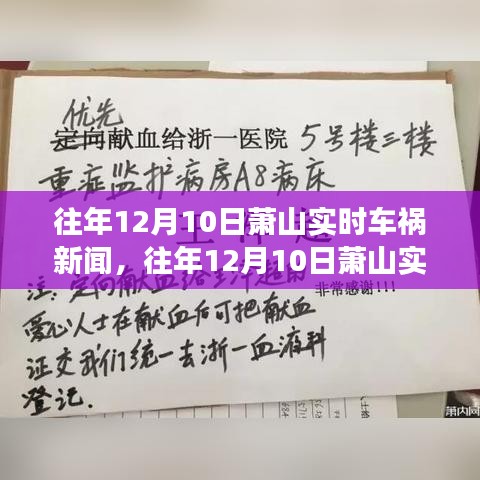 优先
定向献血给浙一医院 5号楼三楼
重症监护病房A8病床
往年12月10日萧山实时车祸
新闻，往年12月10日萧山实
非常感谢!!!
爱心人士在献血后可把献血
证交我们统一去浙一血液科
登记.
萧内网